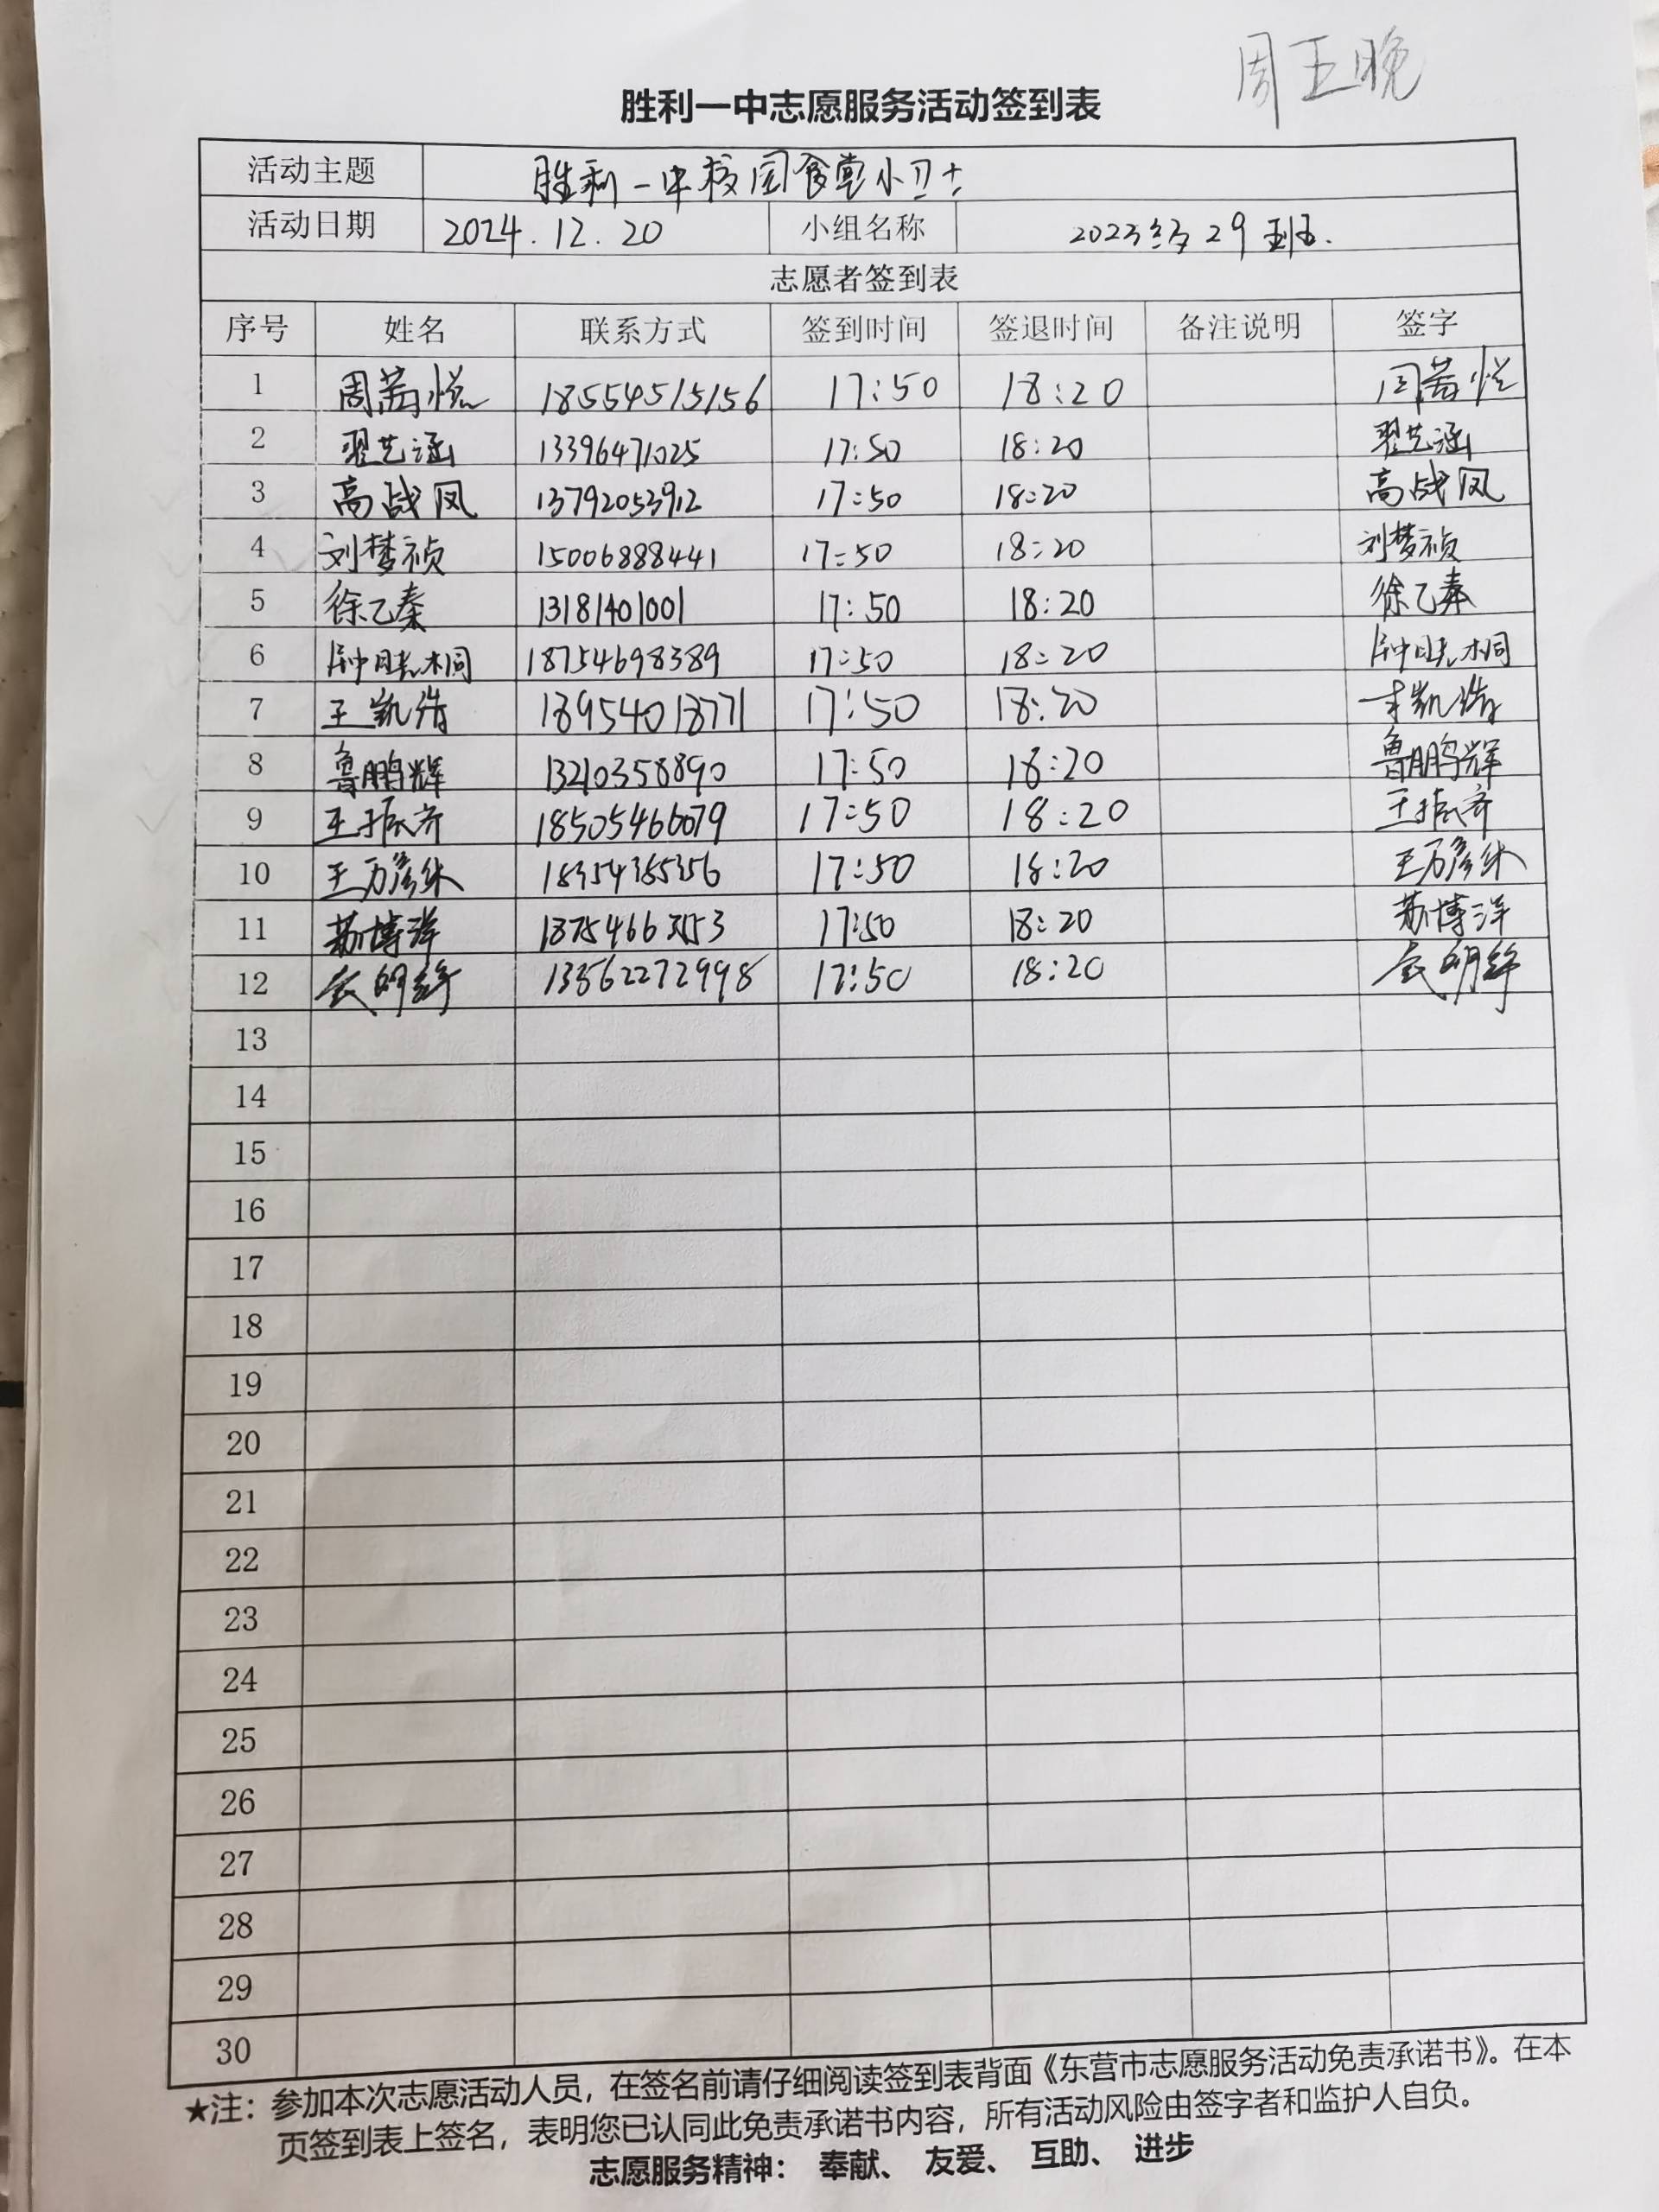 周五晚
胜利一中志愿服务活动签到表
活动主题 胜利一中校园食堂小卫士
活动日期 2024.12.20 小组名称 2023级29班.
志愿者签到表
序号 姓名 联系方式 签到时间 签退时间 备注说明 签字
1 周茜悦 18554515156 17:50 18:20 周茜悦
2 翟艺涵 13396471025 17:50 18:20 翟艺涵
3 高战凤 13792053912 17:50 18:20 高战凤
4 刘梦祯 15006888441 17:50 18:20 刘梦祯
5 徐乙秦 13181401001 17:50 18:20 徐乙秦
6 18754698389 17:50 18:20
7 王凯浩 18954018771 17:50 18:20 王凯浩
8 鲁鹏辉 13210358890 17:50 18:20 鲁鹏辉
9 王振齐 18505466079 17:50 18:20 王振齐
10 17:50 18:20
11 苏博洋 17:50 18:20 苏博洋
12 13562272998 17:50 18:20
13
14
15
16
17
18
19
20
21
22
23
24
25
26
27
28
29
30
★注：参加本次志愿活动人员，在签名前请仔细阅读签到表背面《东营市志愿服务活动免责承诺书》。在本
页签到表上签名，表明您已认同此免责承诺书内容，所有活动风险由签字者和监护人自负。
志愿服务精神： 奉献、 友爱、 互助、 进步